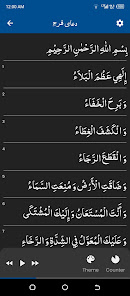 12:00 AM
دعای فرج
بِسْمِ اللَّهِ الرَّحْمَٰنِ الرَّحِيْمِ
1
إِلَٰهِي عَظُمَ الْبَلَاءُ
2
وَبَرِحَ الْخَفَاءُ
3
وَانْكَشَفَ الْغِطَاءُ
4
وَانْقَطَعَ الرَّجَاءُ
5
وَضَاقَتِ الْأَرْضُ وَمُنِعَتِ السَّمَاءُ
6
وَأَنْتَ الْمُسْتَعَانُ وَإِلَيْكَ الْمُشْتَكَىٰ
7
وَعَلَيْكَ الْمُعَوَّلُ فِي الشِّدَّةِ وَالرَّخَاءِ
Theme
Counter